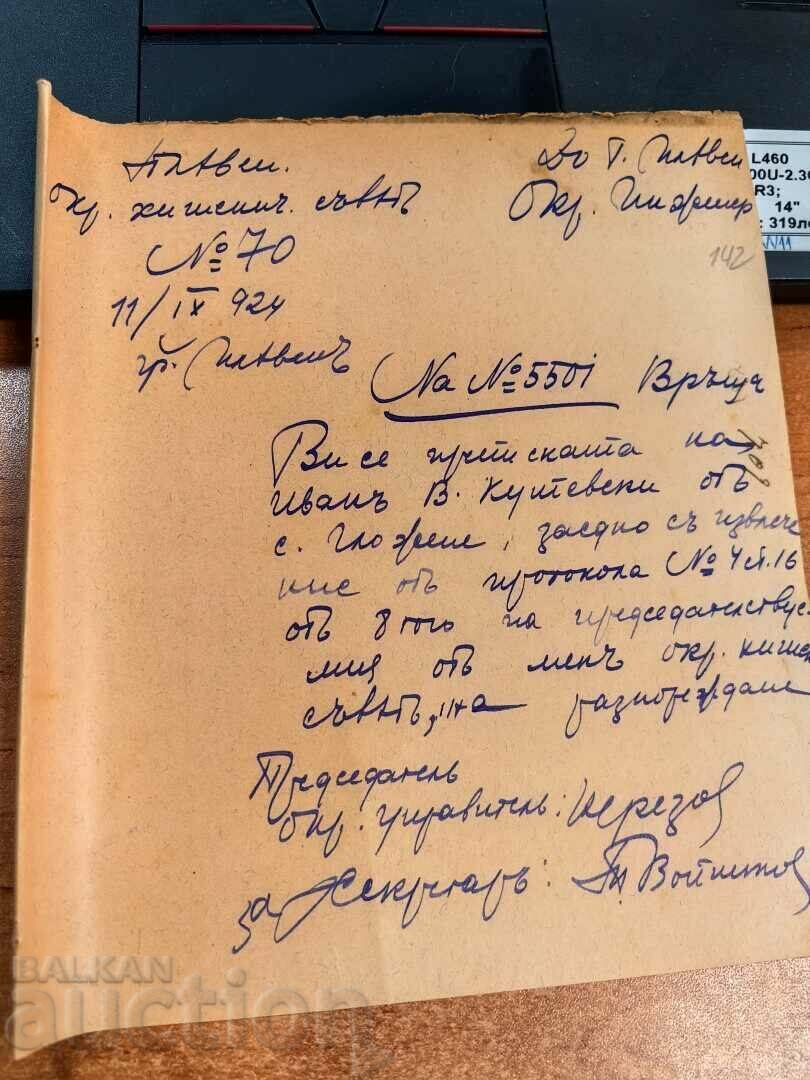 Плевен.
Окр. хигиенич. съветъ
№ 70
11/IX 924
гр. Плевенъ
До Г. Плевен
Окр. Инженер
142
На № 5501 Връща
Ви се преписката на
Иванъ В. Кутевски отъ
с. Гложене, заедно съ извлече
ние отъ протокола № 4 т. 16
отъ 8 того на председателствуе
мия отъ менъ окр. хигиен
съветъ, на разпореждане
Председатель
Окр. управитель:
за Секретарь:
L460
00U-2.3
R3;
14"
: 319ле
BALKAN
auction